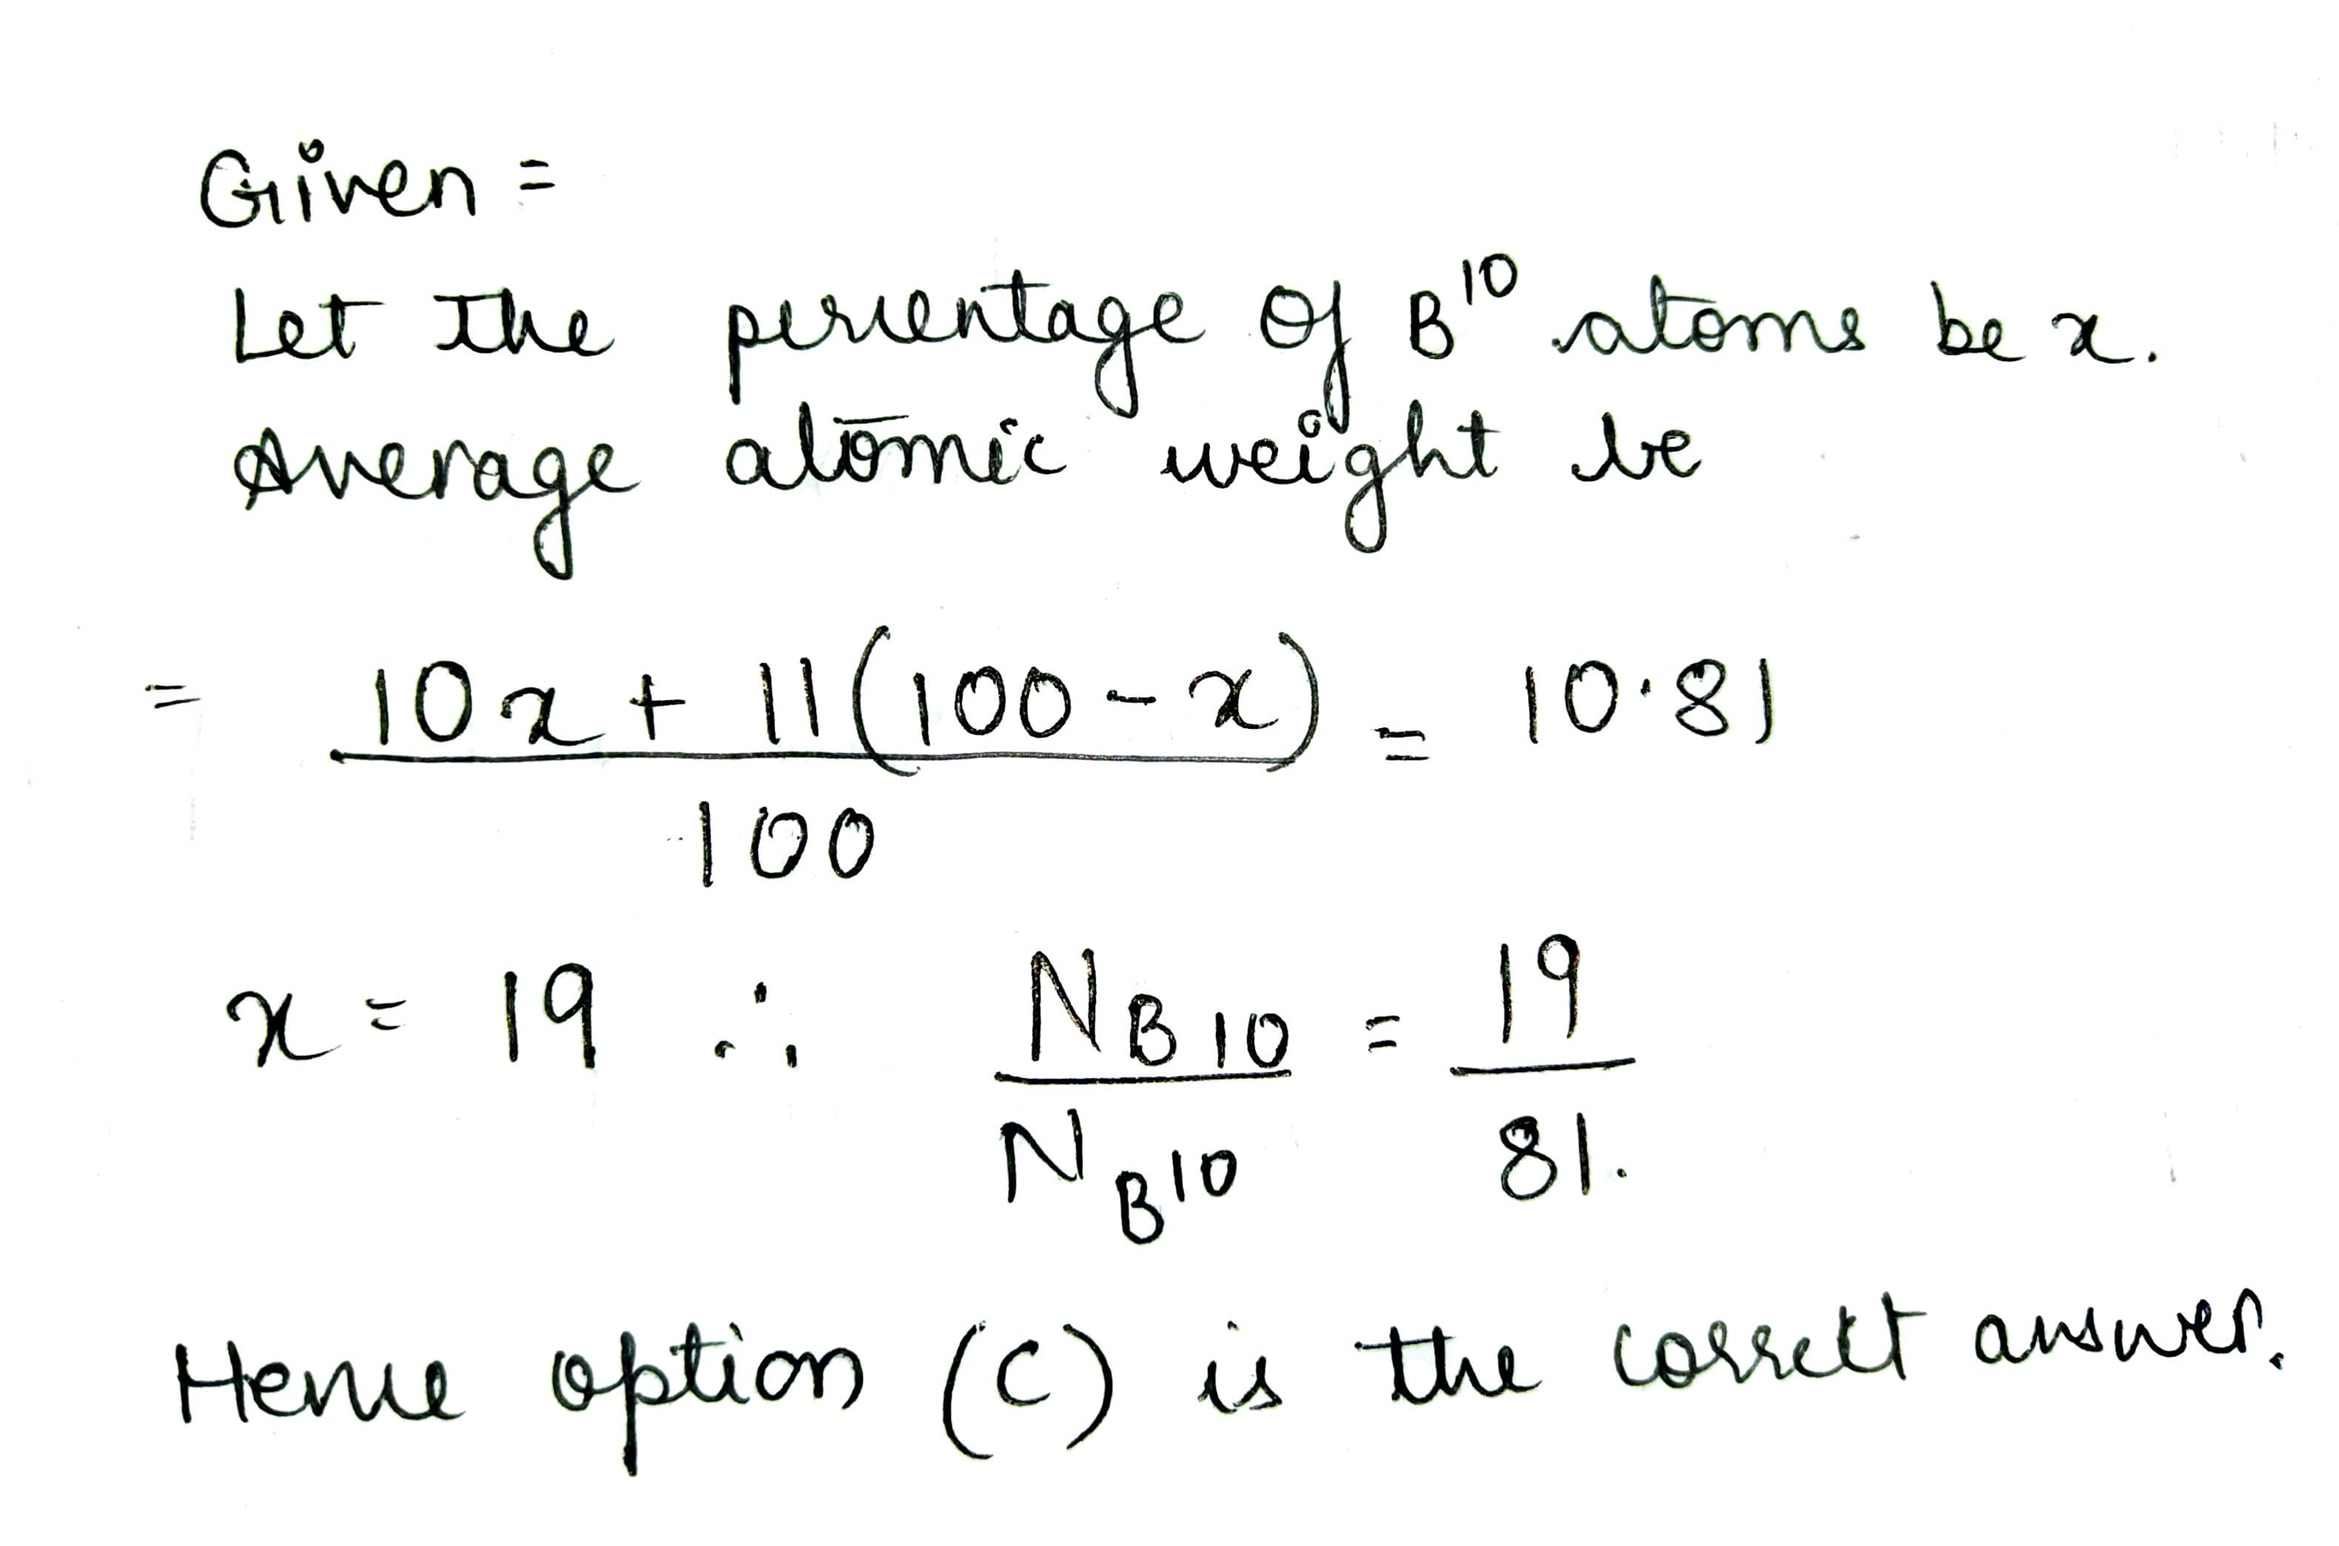 Given =
Let the percentage of B¹⁰ atoms be x.
Average atomic weight be
= 10x + 11(100 - x) = 10.81
100
x = 19 ∴ N B 10 = 19
N B¹⁰ 81.
Hence option (C) is the correct answer.